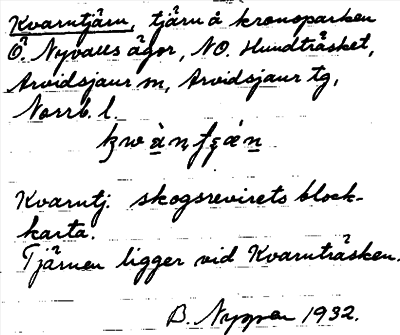 Kvarntjärn, tjärn å kronoparken
Ö. Nyvalls ägor, NO. Hundträsket,
Arvidsjaur sn, Arvidsjaur tg,
Norrb. l.
Kvarntj. skogsrevirets block-
karta.
Tjärnen ligger vid Kvarnträsken.
B. 1932.